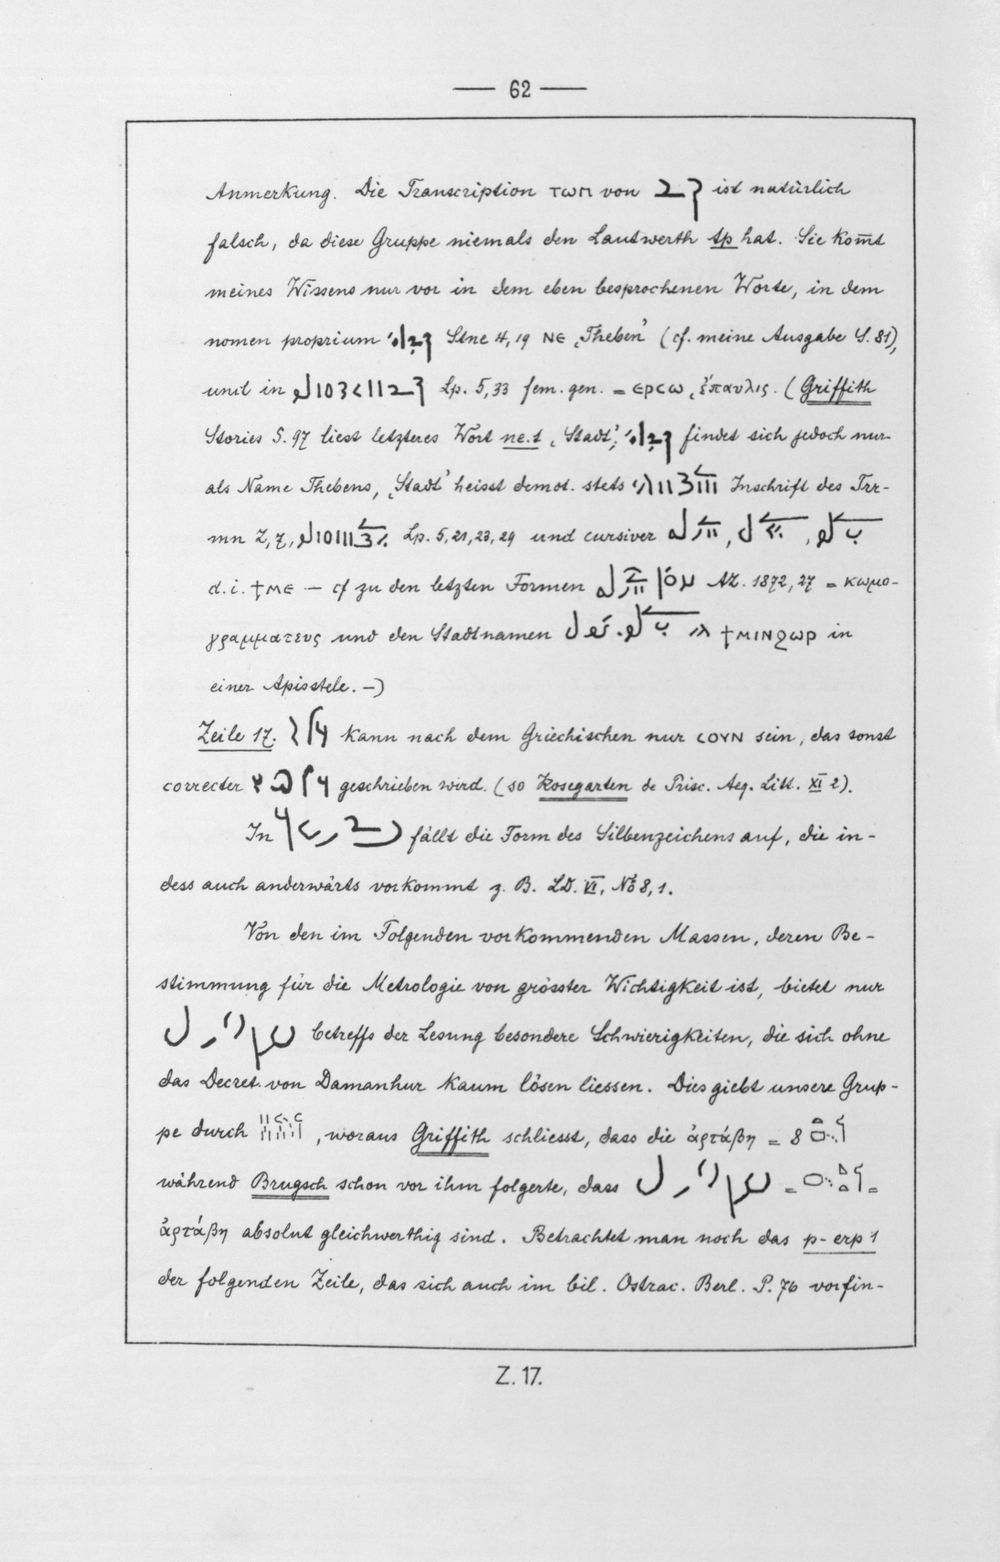 — 62 —
Anmerkung. Die Transcription ⲧⲱⲡ von ist natürlich
falsch, da diese Gruppe niemals den Lautwerth tp hat. Sie kom̄t
meines Wissens nur vor in dem eben besprochenen Worte, in dem
nomen proprium Stne 4, 19 ⲛⲉ „Theben“ (cf. meine Ausgabe S. 81),
und in Lp. 5, 33 fem. gen. = ⲉⲣⲥⲱ „ἔπαυλις. (Griffith
Stories S. 97 liest letzteres Wort ne.t „Stadt“; findet sich jedoch nur
als Name Thebens, „Stadt“ heisst demot. stets Inschrift des Trr-
mn Z, 7, Lp. 5, 21, 23, 29 und cursiver
d. i. ϯⲙⲉ — cf zu den letzten Formen ÄZ. 1872, 27 = κωμο-
γραμματευς und den Stadtnamen ϯⲙⲓⲛϩⲱⲣ in
einer Apisstele. —)
Zeile 17. kann nach dem Griechischen nur ⲥⲟⲩⲛ sein, das sonst
correcter geschrieben wird. (so Kosegarten de Prisc. Aeg. Litt. XI 2).
In fällt die Form des Silbenzeichens auf, die in-
dess auch anderwärts vorkommt z. B. LD. VI, No 8, 1.
Von den im Folgenden vorkommenden Massen, deren Be-
stimmung für die Metrologie von grösster Wichtigkeit ist, bietet nur
betreffs der Lesung besondere Schwierigkeiten, die sich ohne
das Decret von Damanhur kaum lösen liessen. Dies giebt unsere Grup-
pe durch , woraus Griffith schliesst, dass die ἀρτάβη = 8
während Brugsch schon vor ihm folgerte, dass = =
ἀρτάβη absolut gleichwerthig sind. Betrachtet man noch das p- erp 1
der folgenden Zeile, das sich auch im bil. Ostrac. Berl. P. 76 vorfin-
Z. 17.